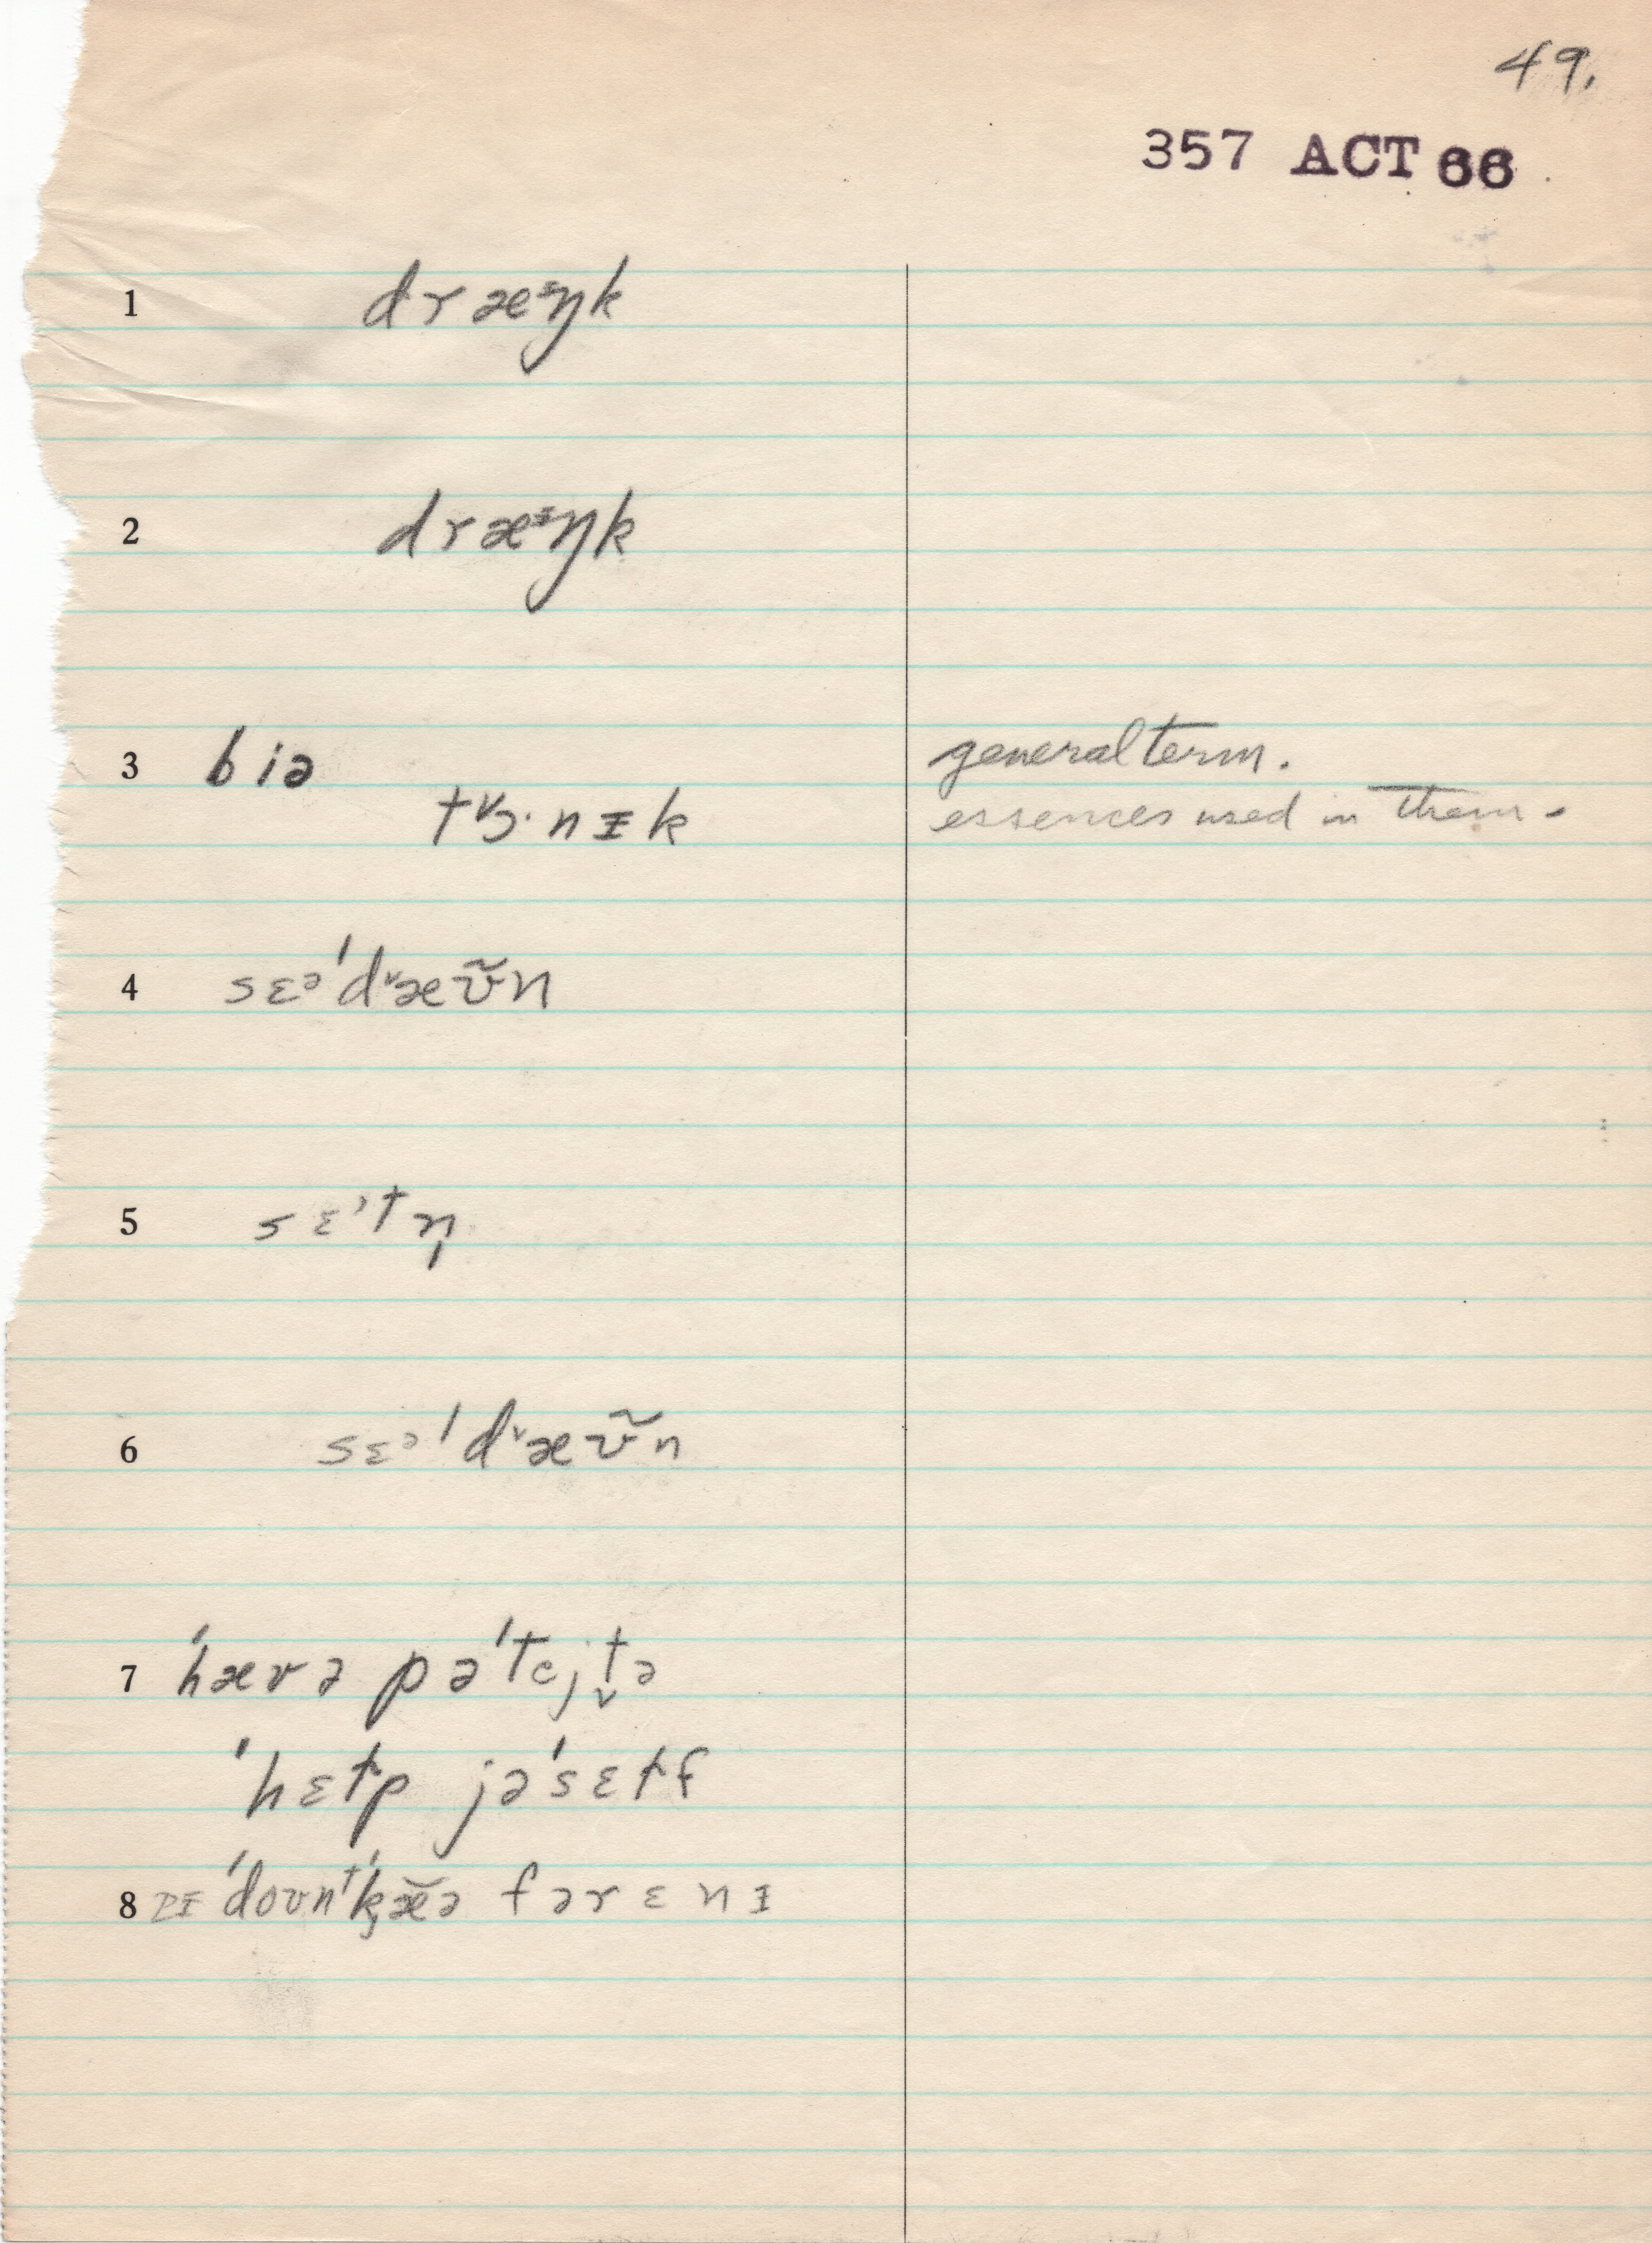 49.
357 ACT 66
1 dræᵻŋk
2 dræᵻŋk
3 biə general term.
tᵛɔ·nᵻk essences used in them.
4 sɛᵊˈdᵛæʊ̃n
5 sɛˈtn̩
6 sɛᵊˈdᵛæʊ̃n
7 ˈhævə pəˈtejt̬ə
ˈhɛɫp jəˈsɛɫf
8 ˈdoʊnᵗˈkæ̆ə fərɛnᵻ